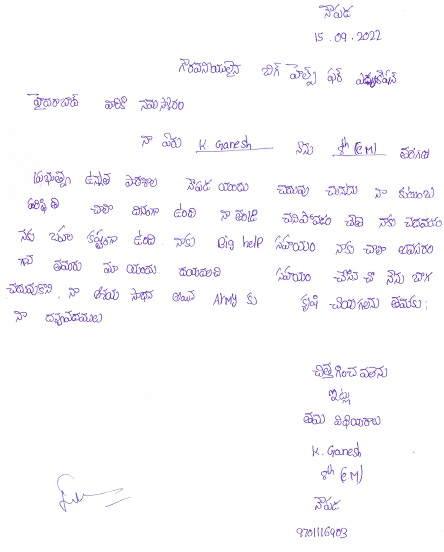 నౌపడ
15.09.2022
గౌరవనీయులైన బిగ్ హెల్ప్ ఫర్ ఎడ్యుకేషన్
హైదరాబాద్ వారికి నమస్కారం
నా పేరు K. Ganesh నేను 8th (EM) తరగతి
ప్రభుత్వ ఉన్నత పాఠశాల నౌపడ యందు చదువు చున్నాను నా కుటుంబ
పరిస్థితి చాలా దీనంగా ఉంది నా తండ్రి చనిపోవడం చేత నాకు చదవడం
నాకు చాలా కష్టంగా ఉంది. నాకు Big help సహాయం నాకు చాలా అవసరం
తమరు మా యందు దయవుంచి సహాయం చేసిన చో నేను బాగ
చదువుకొని, నా ఆశయ సాధన అయిన Army కు కృషి చేయగలను తమకు;
నా ధన్యవాదములు
చిత్తగించవలెను
ఇట్లు
తమ విధేయురాలు
K. Ganesh
8th (EM)
నౌపడ
9701116903